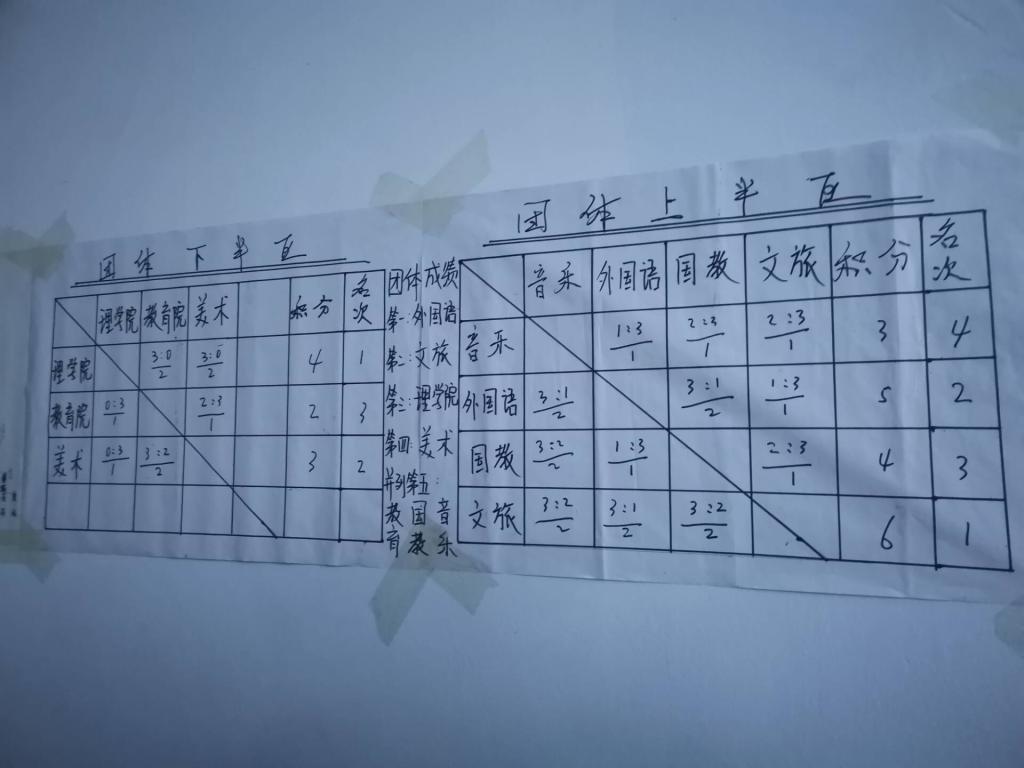 团体下半区
理学院 教育院 美术 积分 名次
理学院 3:0/2 3:0/2 4 1
教育院 0:3/1 2:3/1 2 3
美术 0:3/1 3:2/2 3 2
团体成绩
第一:外国语
第二:文旅
第三:理学院
第四:美术
并列第五:
教育 国教 音乐
团体上半区
音乐 外国语 国教 文旅 积分 名次
音乐 1:3/1 2:3/1 2:3/1 3 4
外国语 3:1/2 3:1/2 1:3/1 5 2
国教 3:2/2 1:3/1 2:3/1 4 3
文旅 3:2/2 3:1/2 3:2/2 6 1